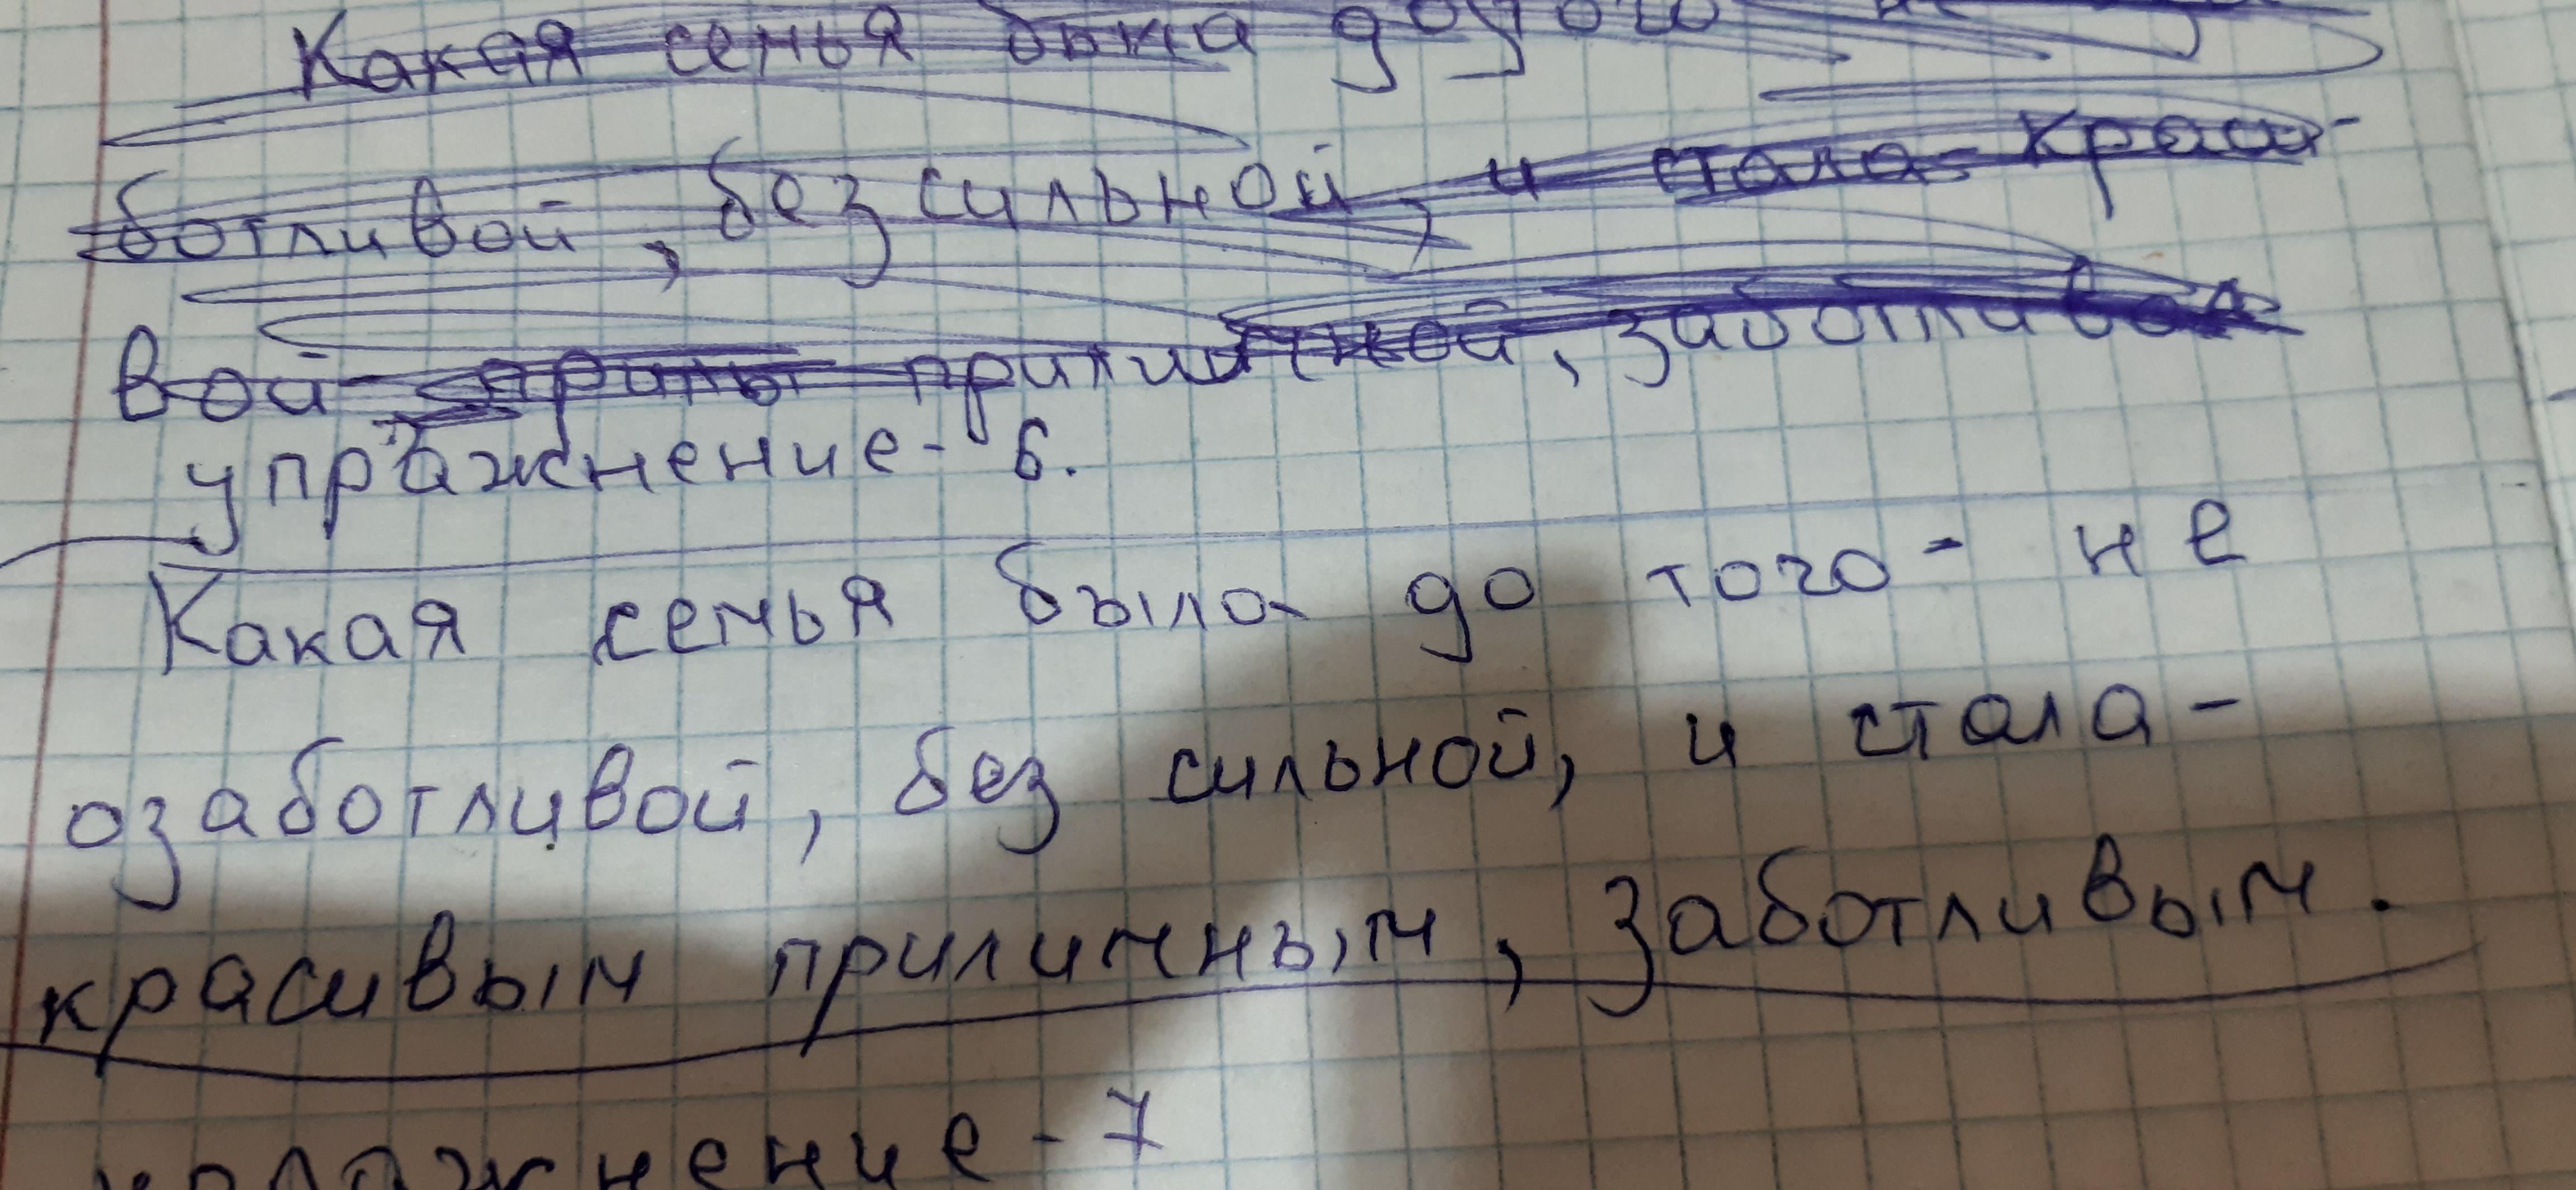 Какая семья была до того
ботливой, без сильной, и стала краси-
вой приличной, заботливой
упражнение- 6.
Какая семья было до того - не
озаботливой, без сильной, и стала -
красивым приличным, заботливым.
упражнение - 7